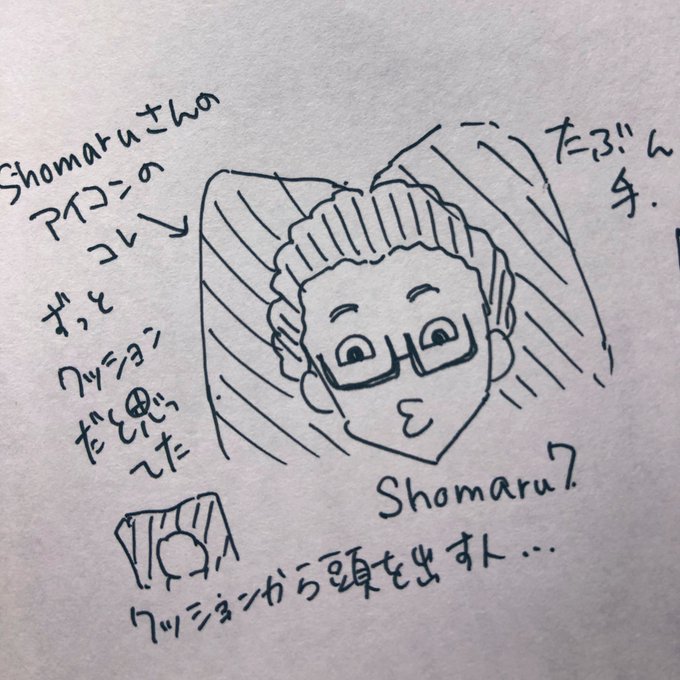 Shomaruさんの
アイコンの
コレ
ずっと
クッション
だと思っ
てた
たぶん
手.
Shomaru7
クッションから頭を出す人...